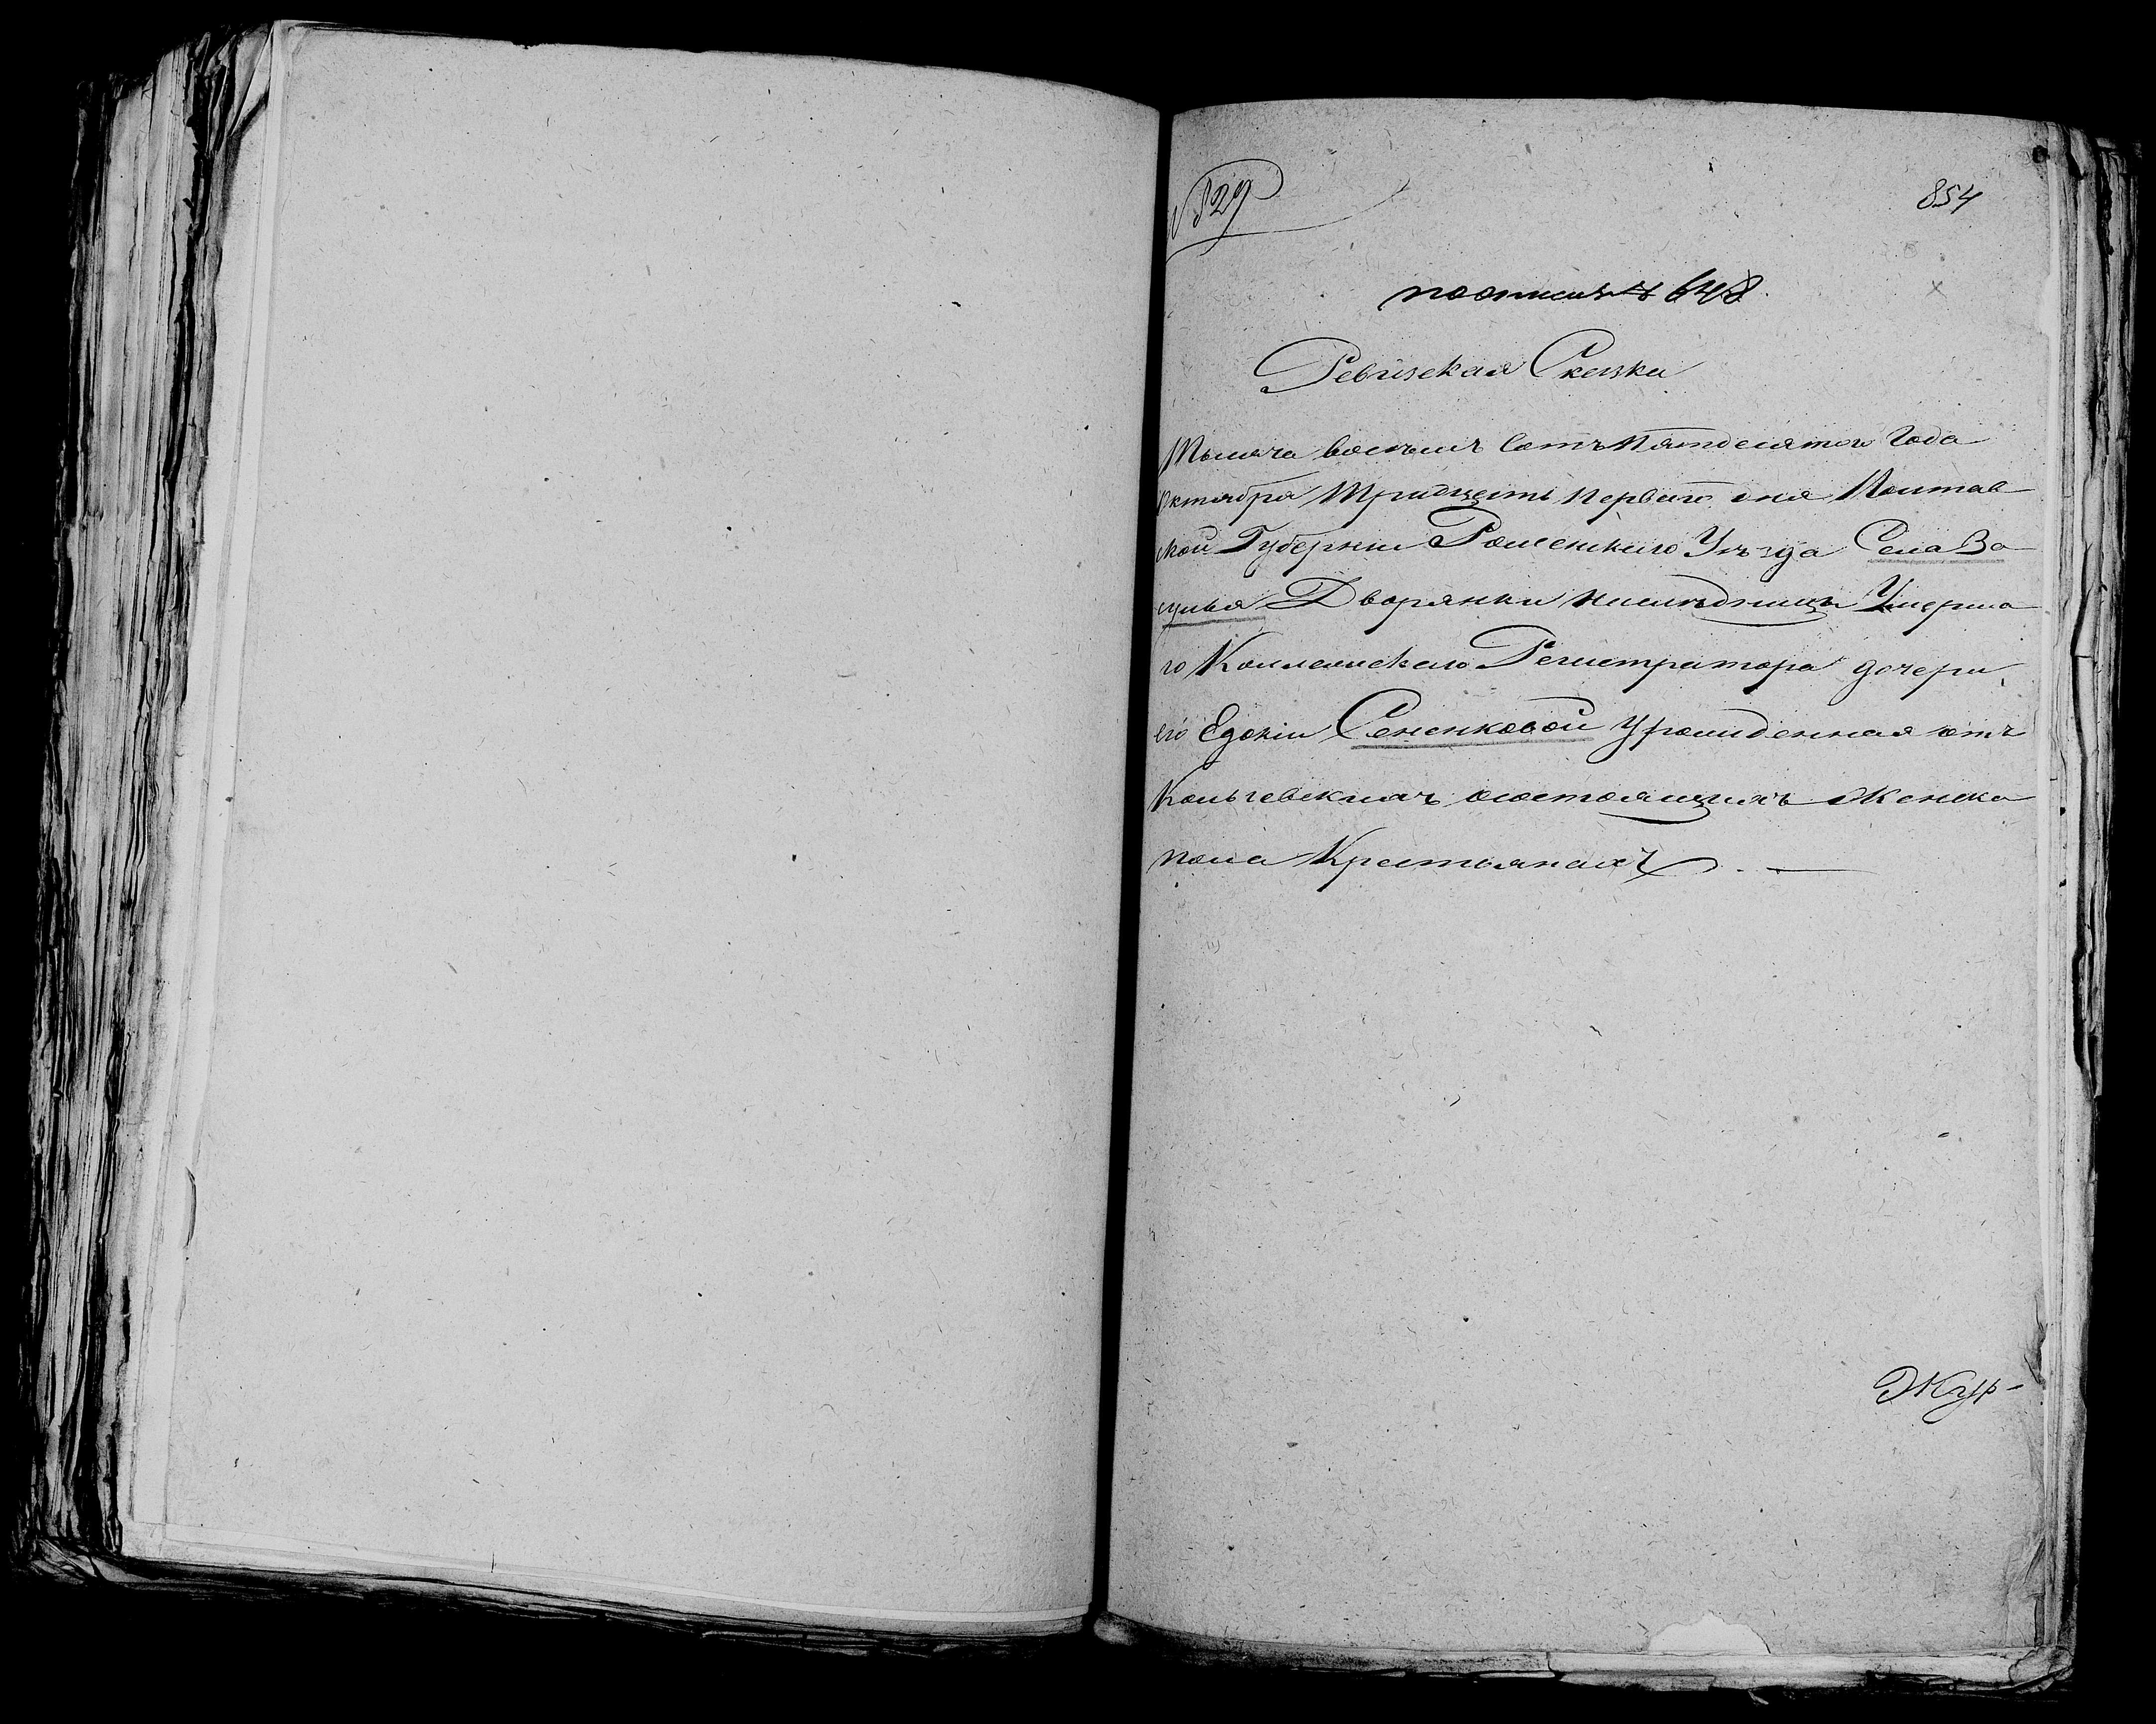 529
854
по описи № 648
Ревизская Сказка
Тысяча восемь Сотъ Пятдесятого Года
Октября Тридцать Первого дня Полтав
ской Губернии Роменского Уѣзда Села За
сулья Дворянки наследницы Умерша
го Коллежского Регистратора дочери
его Едокіи Сененковой Урожденная отъ
состоящихъ Женска
пола Крестьянахъ